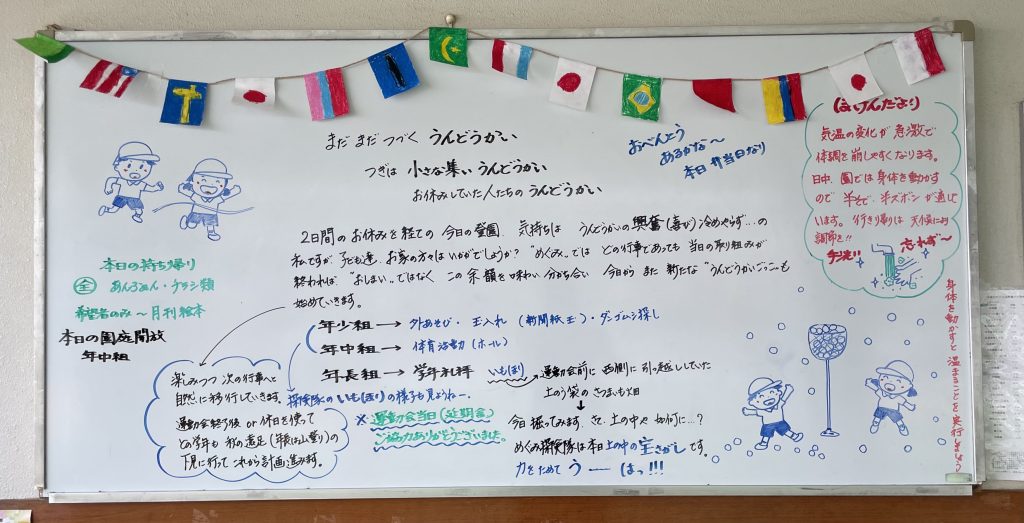 まだまだつづく うんどうかい
つぎは 小さな集い うんどうかい
お休みしていた人たちの うんどうかい
おべんとう
あるかな～
本日弁当日なり
ほけんだより
気温の変化が急激で
体調を崩しやすくなります。
日中、園では身体を動かす
ので半そで、半ズボンが適して
います。行き帰りは天候により
調節を!!
手洗い 忘れず～
身体を動かすと温まることを実行しましょう
2日間のお休みを経ての今日の登園、気持ちは うんどうかいの興奮(喜び)冷めやらず…の
私ですが、子ども達、お家の方々はいかがでしょうか？"めぐみ"では どの行事であっても 当日の取り組みが
終われば "おしまい"ではなく この余韻を味わい分かち合い 今日から また 新たな "うんどうかいごっこ"も
始めていきます。
本日の持ち帰り
全 あんふぁん・チラシ類
希望者のみ～月刊絵本
本日の園庭開放
年中組
年少組→外あそび・玉入れ(新聞紙玉)・ダンゴムシ探し
年中組→体育活動(ホール)
年長組→学年礼拝 いもほり→運動会前に西側に引っ越ししていた
土のう袋のさつまいも畑
探検隊のいもほりの様子も見ようねー。
今日掘ってみます。さて、土の中は如何に…？
めぐみ探検隊は本日土の中の宝さがしです。
力をためて うーーはっ!!!
※運動会当日(延期含)
ご協力ありがとうございました。
楽しみつつ次の行事へと
自然に移行していきます。
運動会終了後 or 休日を使って
どの学年も秋の遠足(年長は山登り)の
下見に行ってこれから計画進みます。